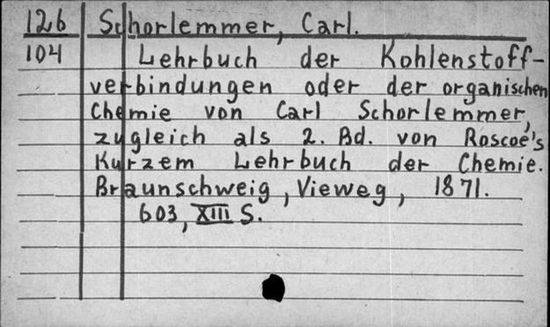 126 Schorlemmer, Carl.
104 Lehrbuch der Kohlenstoff-
verbindungen oder der organischen
Chemie von Carl Schorlemmer,
zugleich als 2. Bd. von Roscoe's
Kurzem Lehrbuch der Chemie.
Braunschweig, Vieweg, 1871.
603, XIII S.